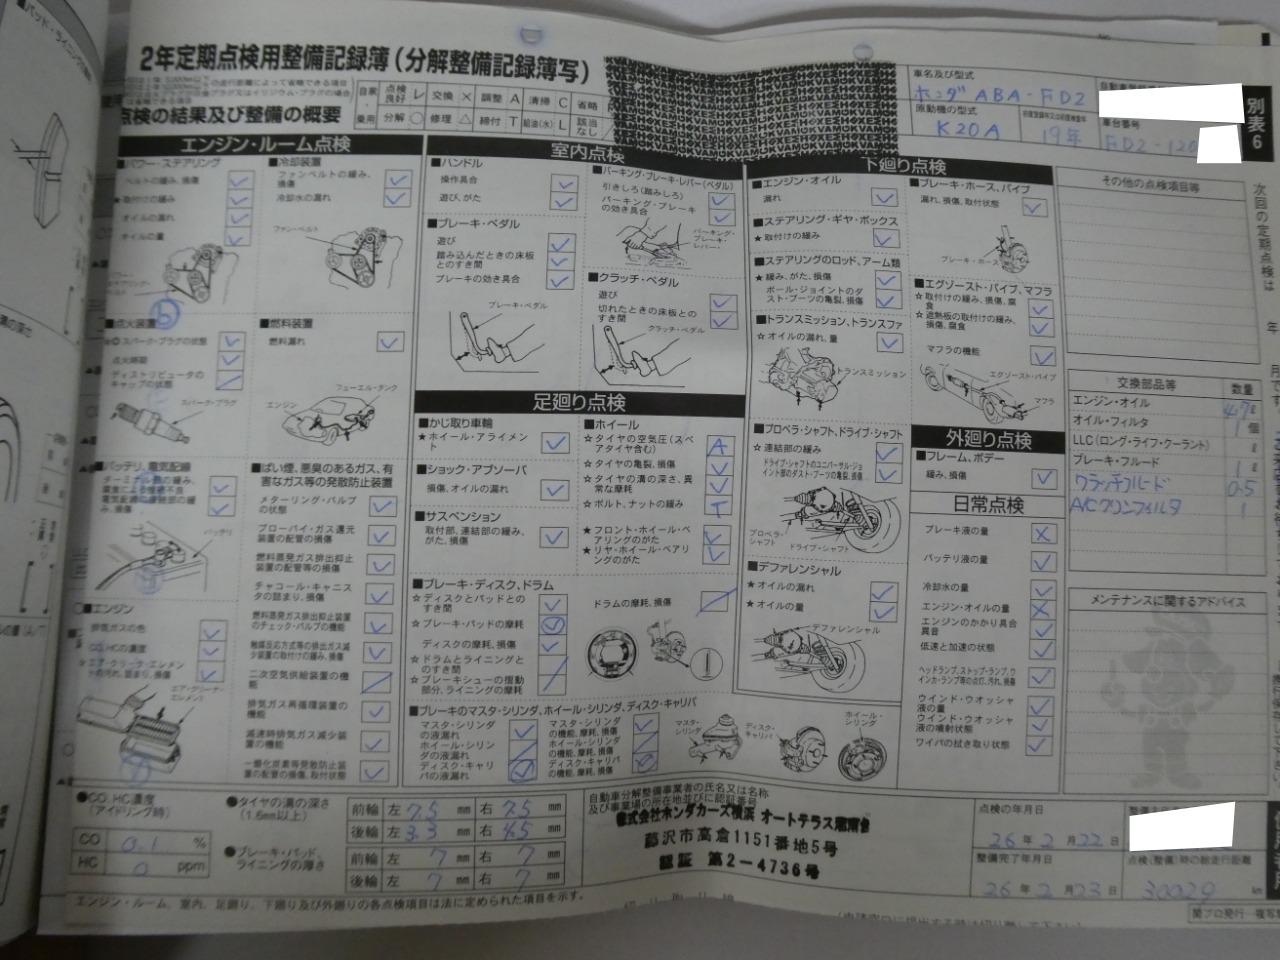 2年定期点検用整備記録簿(分解整備記録簿写)
点検の結果及び整備の概要
自家・乗用
点検良好 レ 交換 × 調整 A 清掃 C 省略
分解 ○ 修理 △ 締付 T 給油(水) L 該当なし
車名及び型式
ホンダ ABA-FD2
原動機の型式
K20A
19年
車台番号
FD2-120
別表6
次回の定期点検は
エンジン・ルーム点検
■パワー・ステアリング
ベルトの緩み、損傷
★取付けの緩み
オイルの漏れ
オイルの量
■冷却装置
ファンベルトの緩み、損傷
冷却水の漏れ
ファン・ベルト
■点火装置
スパーク・プラグの状態
点火時期
ディストリビュータのキャップの状態
スパーク・プラグ
■燃料装置
燃料漏れ
フューエル・タンク
エンジン
■バッテリ、電気配線
バッテリ
■ばい煙、悪臭のあるガス、有害なガス等の発散防止装置
メターリング・バルブの状態
ブローバイ・ガス還元装置の配管の損傷
燃料蒸発ガス排出抑止装置の配管等の損傷
チャコール・キャニスタの詰まり、損傷
燃料蒸発ガス排出抑止装置のチェック・バルブの機能
触媒反応方式等の排出ガス減少装置の取付けの緩み、損傷
二次空気供給装置の機能
排気ガス再循環装置の機能
減速時排気ガス減少装置の機能
一酸化炭素等発散防止装置の配管の損傷、取付状態
■エンジン
排気ガスの色
CO、HCの濃度
エア・クリーナ・エレメントの汚れ、詰まり、損傷
エア・クリーナー・エレメント
室内点検
■ハンドル
操作具合
遊び、がた
■ブレーキ・ペダル
遊び
踏み込んだときの床板とのすき間
ブレーキの効き具合
ブレーキ・ペダル
■パーキング・ブレーキ・レバー(ペダル)
引きしろ(踏みしろ)
パーキング・ブレーキの効き具合
パーキング・ブレーキ・レバー
■クラッチ・ペダル
遊び
切れたときの床板とのすき間
クラッチ・ペダル
足廻り点検
■かじ取り車輪
★ホイール・アライメント
■ショック・アブソーバ
損傷、オイルの漏れ
■サスペンション
取付部、連結部の緩み、がた、損傷
■ホイール
☆タイヤの空気圧(スペアタイヤ含む) A
☆タイヤの亀裂、損傷
☆タイヤの溝の深さ、異常な摩耗
☆ボルト、ナットの緩み T
★フロント・ホイール・ベアリングのがた
★リヤ・ホイール・ベアリングのがた
■ブレーキ・ディスク、ドラム
☆ディスクとパッドとのすき間
☆ブレーキ・パッドの摩耗
ディスクの摩耗、損傷
☆ドラムとライニングとのすき間
☆ブレーキシューの摺動部分、ライニングの摩耗
ドラムの摩耗、損傷
■ブレーキのマスタ・シリンダ、ホイール・シリンダ、ディスク・キャリパ
マスタ・シリンダの液漏れ
ホイール・シリンダの液漏れ
ディスク・キャリパの液漏れ
マスタ・シリンダの機能、摩耗、損傷
ホイール・シリンダの機能、摩耗、損傷
ディスク・キャリパの機能、摩耗、損傷
マスタ・シリンダ
ディスク・キャリパ
ホイール・シリンダ
下廻り点検
■エンジン・オイル
漏れ
■ステアリング・ギヤ・ボックス
★取付けの緩み
■ステアリングのロッド、アーム類
★緩み、がた、損傷
ボール・ジョイントのダスト・ブーツの亀裂、損傷
■トランスミッション、トランスファ
☆オイルの漏れ、量
トランスミッション
■プロペラ・シャフト、ドライブ・シャフト
☆連結部の緩み
ドライブ・シャフトのユニバーサル・ジョイント部のダスト・ブーツの亀裂、損傷
プロペラ・シャフト
ドライブ・シャフト
■デファレンシャル
★オイルの漏れ
★オイルの量
デファレンシャル
■ブレーキ・ホース、パイプ
漏れ、損傷、取付状態
ブレーキ・ホース
■エグゾースト・パイプ、マフラ
☆取付けの緩み、損傷、腐食
☆遮熱板の取付けの緩み、損傷、腐食
マフラの機能
エグゾースト・パイプ
マフラ
外廻り点検
■フレーム、ボデー
緩み、損傷
日常点検
ブレーキ液の量 ×
バッテリ液の量
冷却水の量
エンジン・オイルの量 ×
エンジンのかかり具合 異音
低速と加速の状態
ヘッドランプ、ストップ・ランプ、ウインカ・ランプ等の点灯、汚れ、損傷
ウインド・ウオッシャ液の量
ウインド・ウオッシャ液の噴射状態
ワイパの拭き取り状態
その他の点検項目等
交換部品等 数量
エンジン・オイル 4.7ℓ
オイル・フィルタ 1個
LLC(ロング・ライフ・クーラント) ℓ
ブレーキ・フルード 1ℓ
クラッチフルード 0.5
A/Cクリンフィルタ 1
メンテナンスに関するアドバイス
●CO、HC濃度
(アイドリング時)
CO 0.1 %
HC 0 ppm
●タイヤの溝の深さ
(1.6mm以上)
前輪 左 7.5 mm 右 7.5 mm
後輪 左 3.3 mm 右 4.5 mm
●ブレーキ・パッド、ライニングの厚さ
前輪 左 7 mm 右 7 mm
後輪 左 7 mm 右 7 mm
自動車分解整備事業者の氏名又は名称
及び事業場の所在地並びに認証番号
株式会社ホンダカーズ横浜 オートテラス湘南台
藤沢市高倉1151番地5号
認証 第2-4736号
点検の年月日
26年2月22日
整備完了年月日
26年2月23日
点検(整備)時の総走行距離
30029 km
エンジン・ルーム、室内、足廻り、下廻り及び外廻りの各点検項目は法に定められた項目を示す。